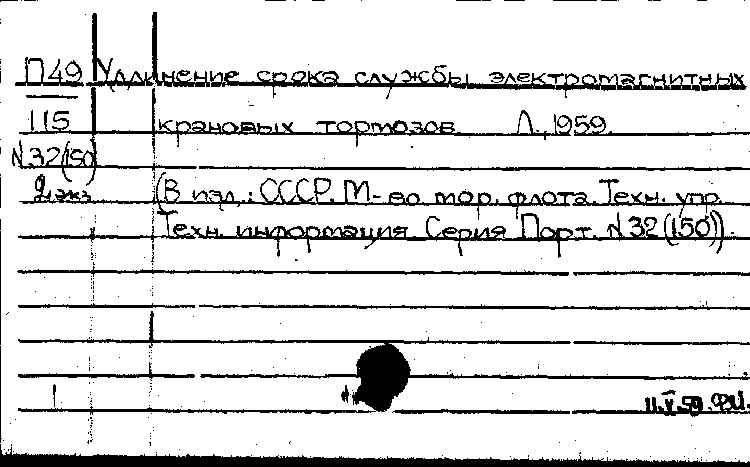 П49 Удлинение срока службы электромагнитных
115 крановых тормозов Л., 1959.
N32(150)
2 экз. (В изд.: СССР. М-во мор. флота. Техн. упр.
Техн. информация Серия Порт. N32(150)).
11.V.59.